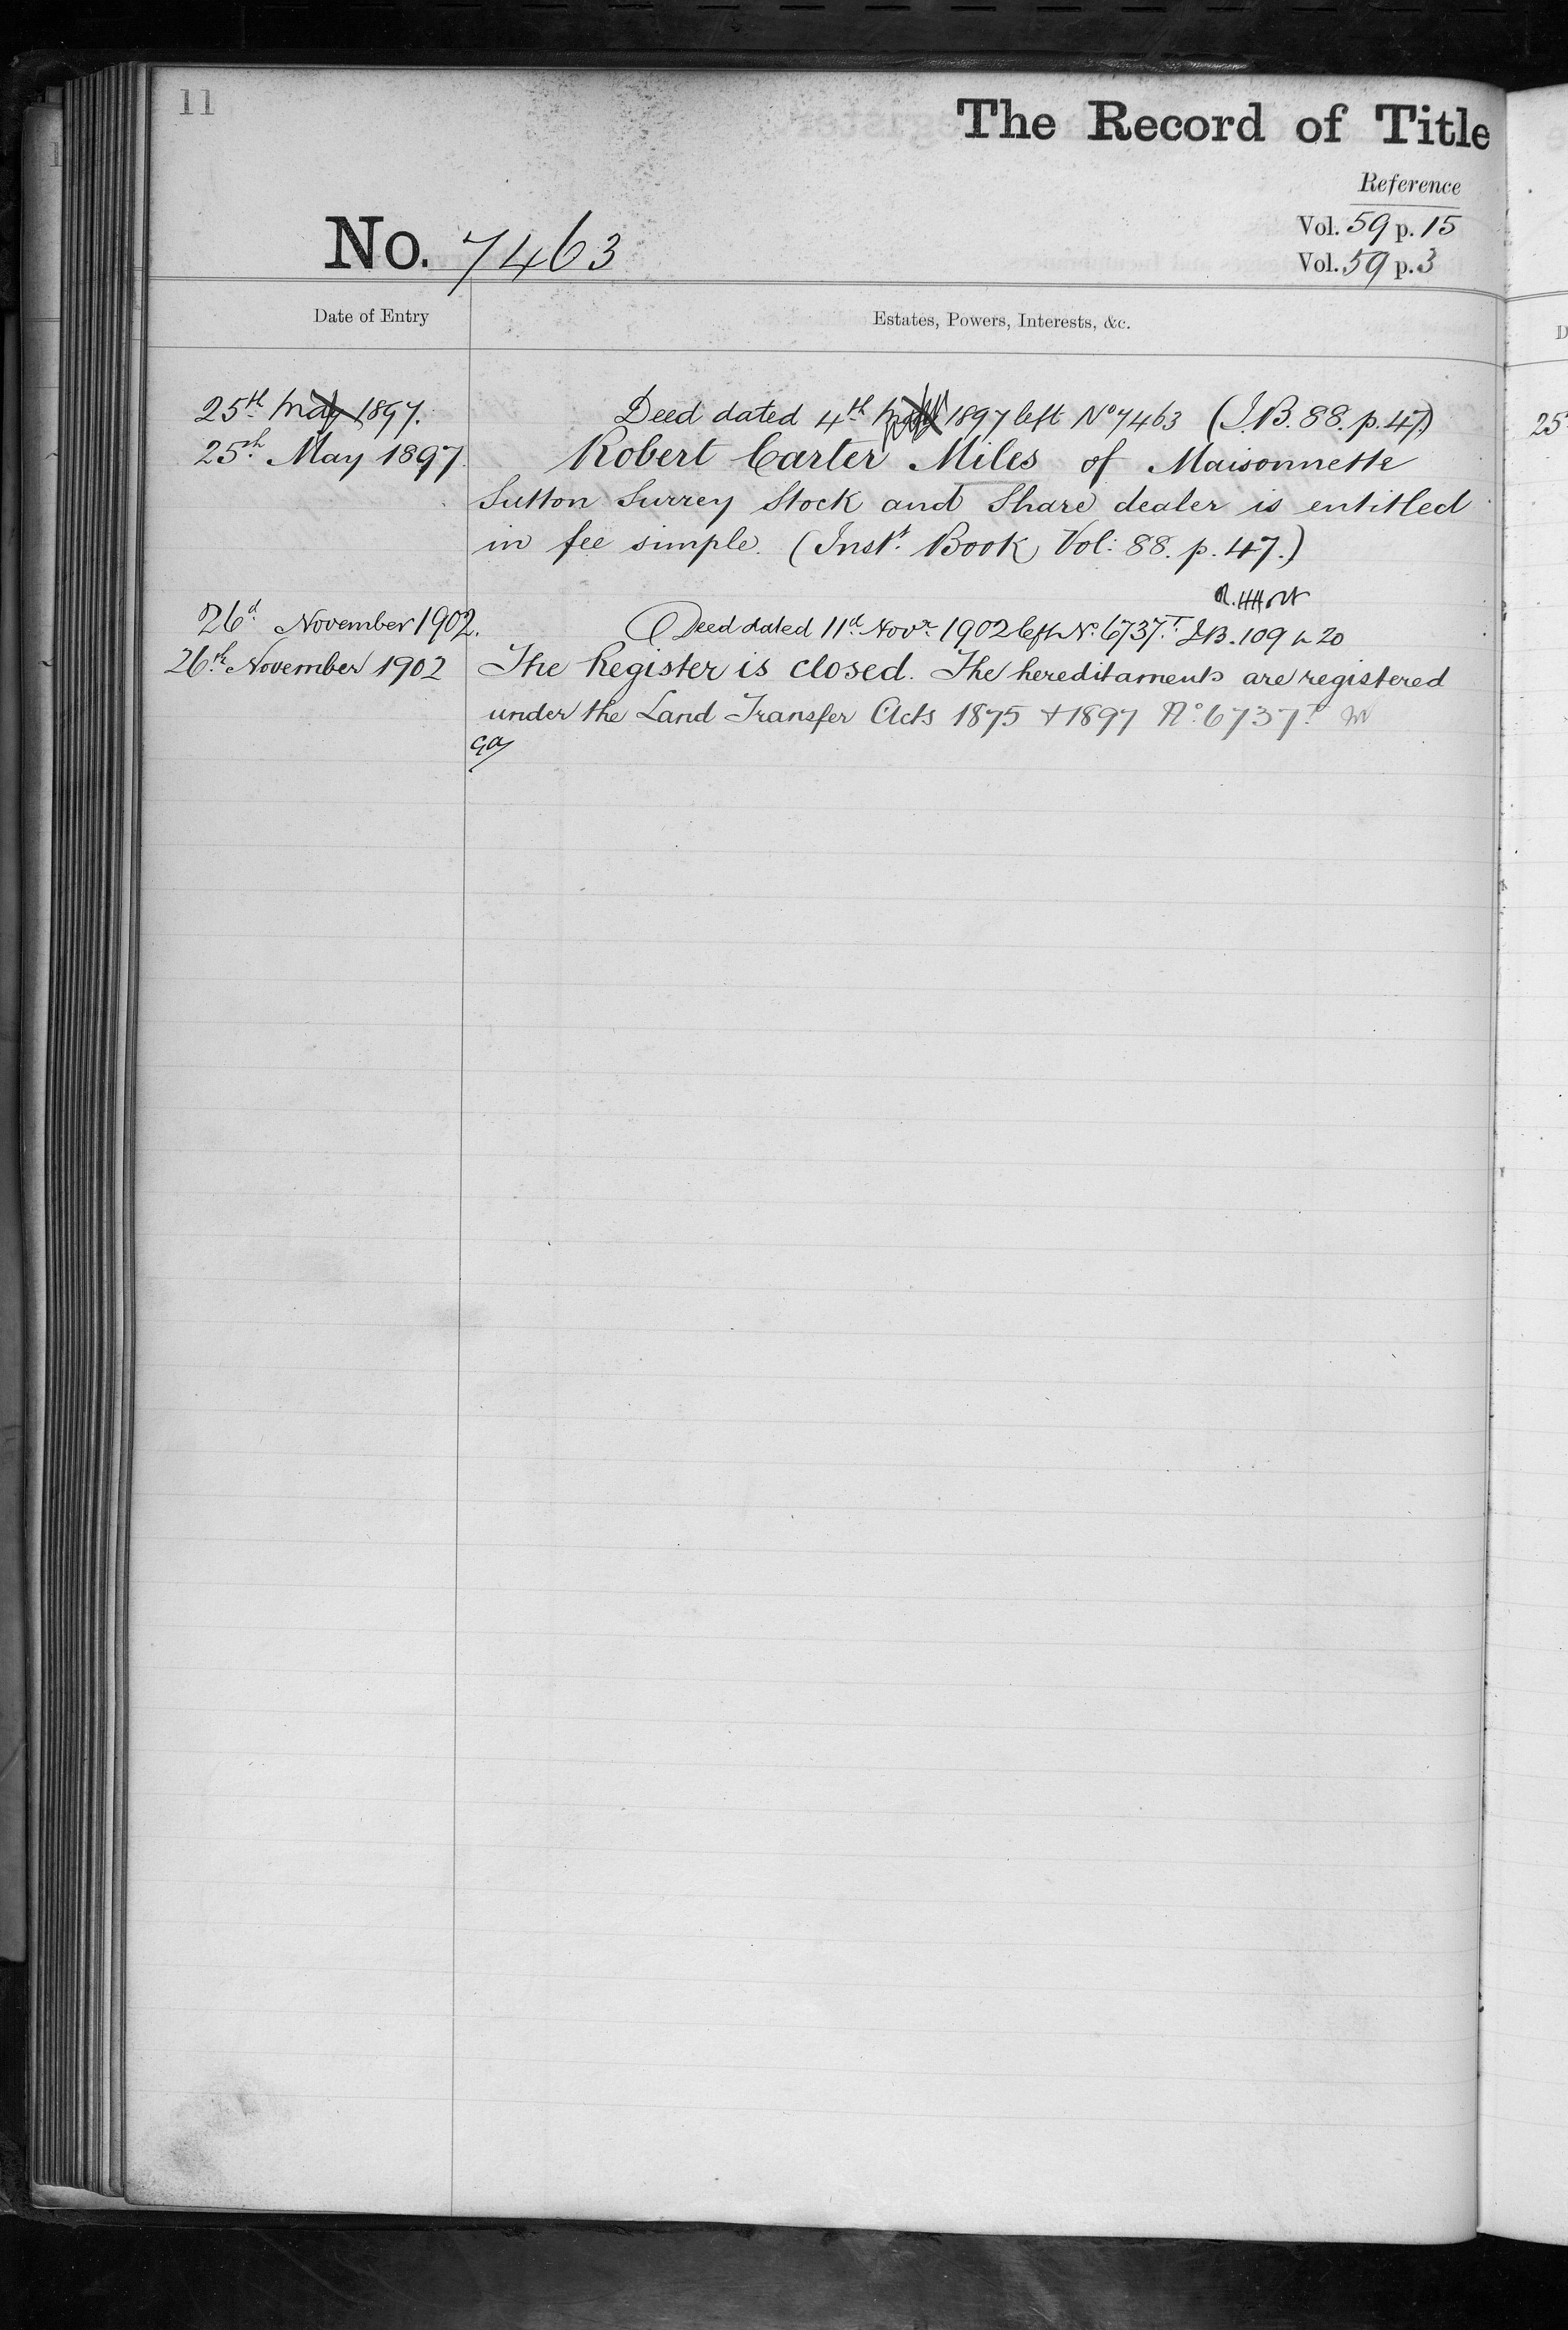 11
The Record of Title
Reference
Vol. 59 p. 15
Vol. 59 p. 3
No. 7463
Date of Entry
Estates, Powers, Interests, &c.
25th May 1897. Deed dated 4th 1897 left No 7463 (I.B. 88. p. 47)
25th May 1897. Robert Carter Miles of Maisonnette
Sutton Surrey Stock and Share dealer is entitled
in fee simple. (Inst. Book Vol: 88. p. 47.)
26d November 1902. Deed dated 11d Novr 1902 left No. 6737.T I.B. 109 20
26th November 1902 The Register is closed. The hereditaments are registered
under the Land Transfer Acts 1875 + 1897 No. 6737T
25